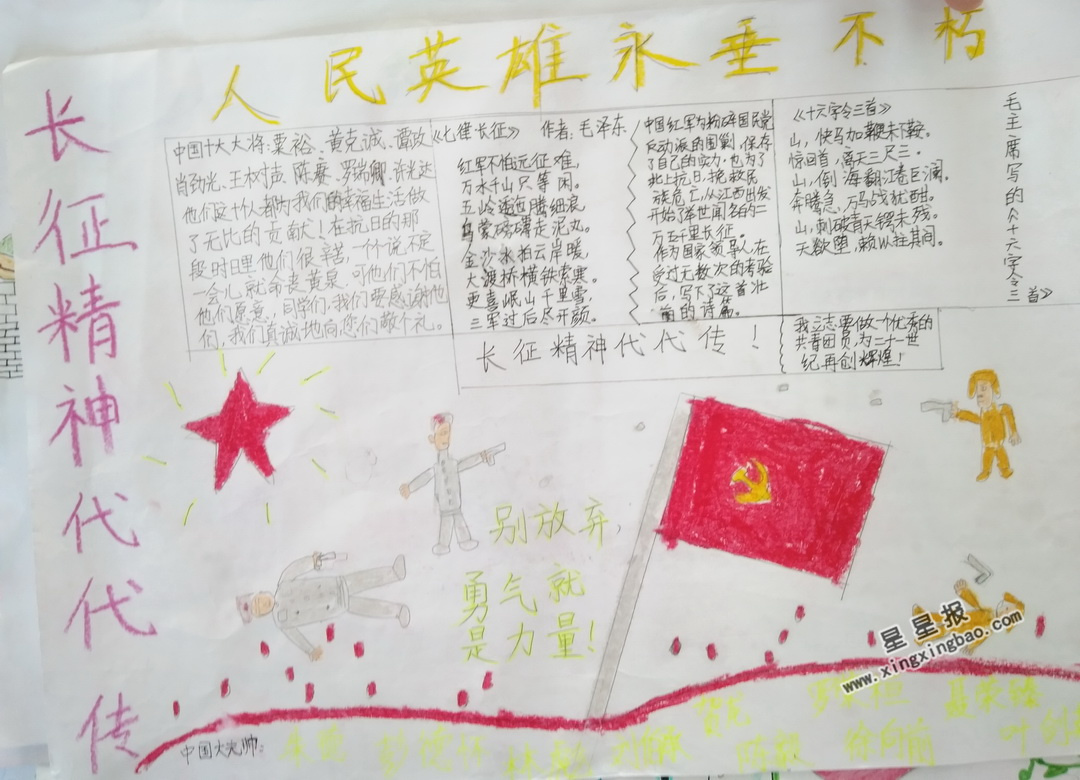 人民英雄永垂不朽
长征精神代代传
中国十大大将:粟裕、黄克诚、谭政、
肖劲光、王树声、陈赓、罗瑞卿、许光达
他们这十人都为我们的幸福生活做
了无比的贡献!在抗日的那
段时日里他们很辛苦,一什说不定
一会儿就命丧黄泉,可他们不怕
他们愿意,同学们,我们要感谢他
们,我们真诚地向您们敬个礼。
《七律长征》 作者:毛泽东
红军不怕远征难,
万水千山只等闲。
五岭逶迤腾细浪
乌蒙磅礴走泥丸。
金沙水拍云岸暖,
大渡桥横铁索寒。
更喜岷山千里雪,
三军过后尽开颜。
中国红军为粉碎国民党
反动派的围剿,保存
了自己的实力,也为了
北上抗日,挽救民
族危亡,从江西出发
开始了举世闻名的二
万五千里长征。
作为国家领导人在
受过无数次的考验
后,写下了这首壮
丽的诗篇。
《十六字令三首》
山,快马加鞭未下鞍。
惊回首,离天三尺三.
山,倒海翻江卷巨澜.
奔腾急,万马战犹酣。
山,刺破青天锷未残。
天欲堕,赖以柱其间。
毛主席写的《十六字令三
首》
长征精神代代传!
我立志要做一个优秀的
共青团员,为二十一世
纪再创辉煌!
别放弃,
勇气就
是力量!
星星报
www.xingxingbao.com
中国大元帅:
朱德 彭德怀 林彪 刘伯承 贺龙 陈毅 罗荣桓 徐向前 聂荣臻 叶剑